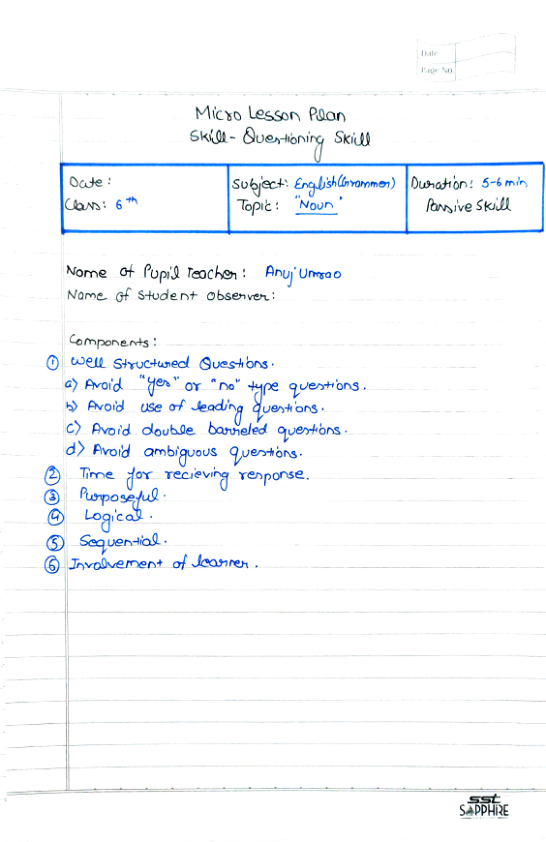 Date
Page No.
Micro Lesson Plan
Skill- Questioning Skill
Date :
Class: 6th
Subject: English(Grammer)
Topic: "Noun"
Duration: 5-6 min
Passive Skill
Name of Pupil Teacher: Anuj Umrao
Name of Student Observer:
Components:
① Well Structured Questions.
a) Avoid "yes" or "no" type questions.
b) Avoid use of leading questions.
c) Avoid double barreled questions.
d) Avoid ambiguous questions.
② Time for recieving response.
③ Purposeful.
④ Logical.
⑤ Sequential.
⑥ Involvement of learner.
sst
SAPPHIRE